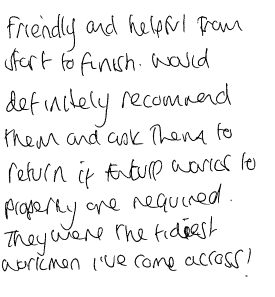 Friendly and helpful from
start to finish. would
definitely recommend
them and ask them to
return if future works to
property are required.
They were the tidiest
workmen I've come across!